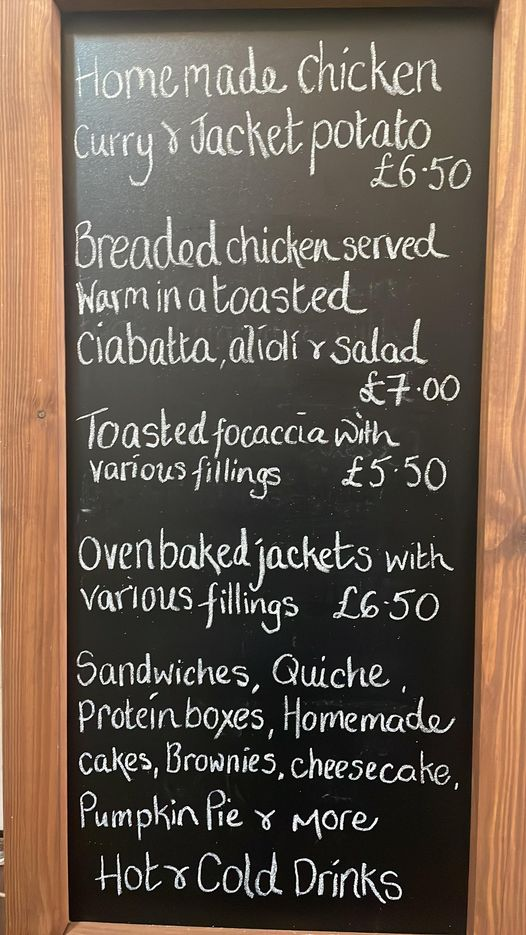 Homemade Chicken
Curry & Jacket potato
£6.50
Breaded chicken served
Warm in a toasted
Ciabatta, alioli & salad
£7.00
Toasted focaccia with
various fillings £5.50
Oven baked jackets with
various fillings £6.50
Sandwiches, Quiche,
Protein boxes, Homemade
cakes, Brownies, cheesecake,
Pumpkin Pie & More
Hot & Cold Drinks